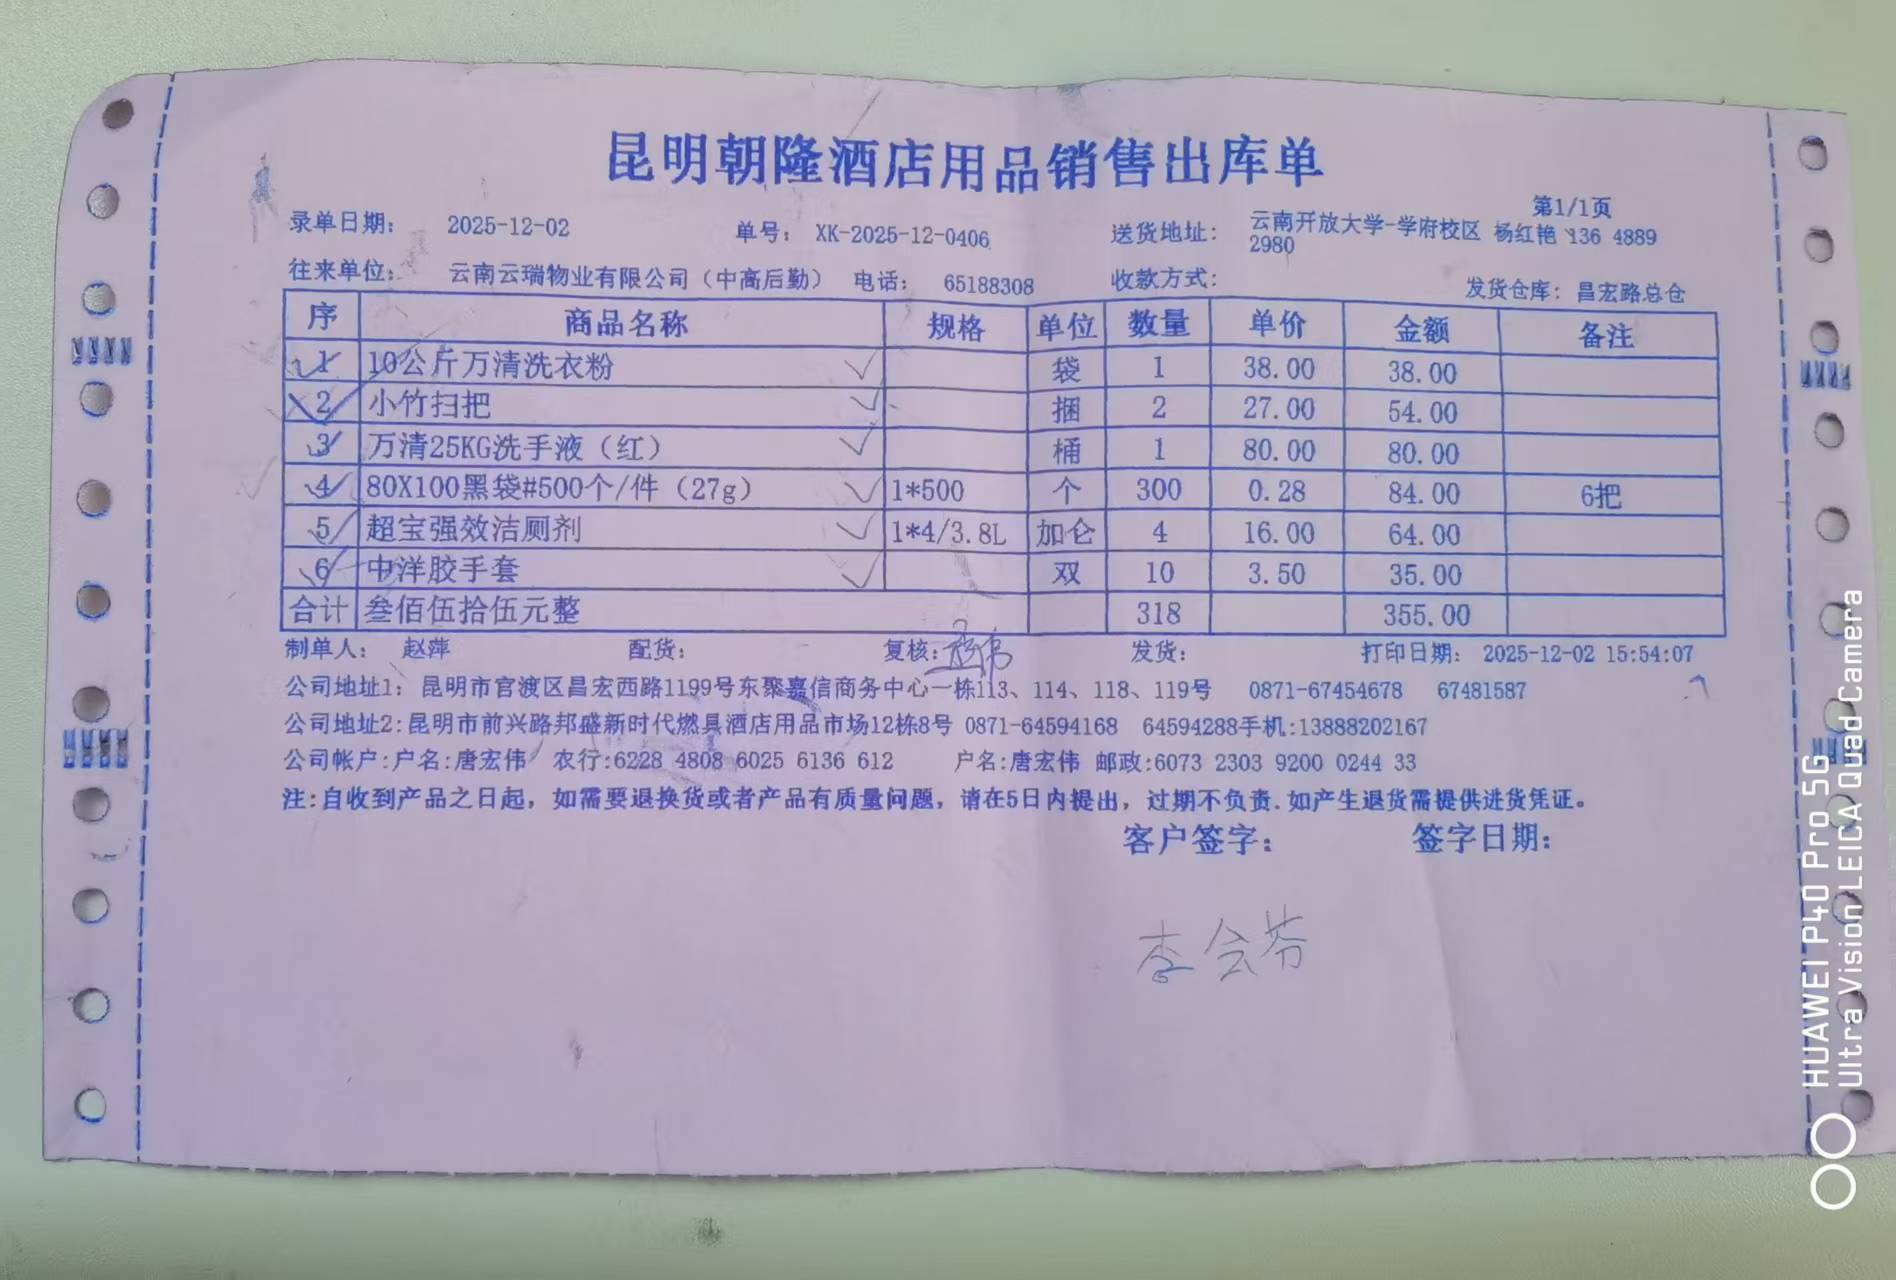 昆明朝隆酒店用品销售出库单
第1/1页
录单日期： 2025-12-02 单号： XK-2025-12-0406 送货地址： 云南开放大学-学府校区 杨红艳 136 4889
2980
往来单位： 云南云瑞物业有限公司（中高后勤） 电话： 65188308 收款方式： 发货仓库：昌宏路总仓
序 商品名称 规格 单位 数量 单价 金额 备注
1 10公斤万清洗衣粉 袋 1 38.00 38.00
2 小竹扫把 捆 2 27.00 54.00
3 万清25KG洗手液（红） 桶 1 80.00 80.00
4 80X100黑袋#500个/件（27g） 1*500 个 300 0.28 84.00 6把
5 超宝强效洁厕剂 1*4/3.8L 加仑 4 16.00 64.00
6 中洋胶手套 双 10 3.50 35.00
合计 叁佰伍拾伍元整 318 355.00
制单人： 赵萍 配货： 复核： 发货： 打印日期： 2025-12-02 15:54:07
公司地址1：昆明市官渡区昌宏西路1199号东聚嘉信商务中心一栋113、114、118、119号 0871-67454678 67481587
公司地址2:昆明市前兴路邦盛新时代燃具酒店用品市场12栋8号 0871-64594168 64594288手机:13888202167
公司帐户:户名:唐宏伟 农行:6228 4808 6025 6136 612 户名:唐宏伟 邮政:6073 2303 9200 0244 33
注:自收到产品之日起，如需要退换货或者产品有质量问题，请在5日内提出，过期不负责.如产生退货需提供进货凭证。
客户签字： 签字日期：
李会芬
HUAWEI P40 Pro 5G
Ultra Vision LEICA Quad Camera